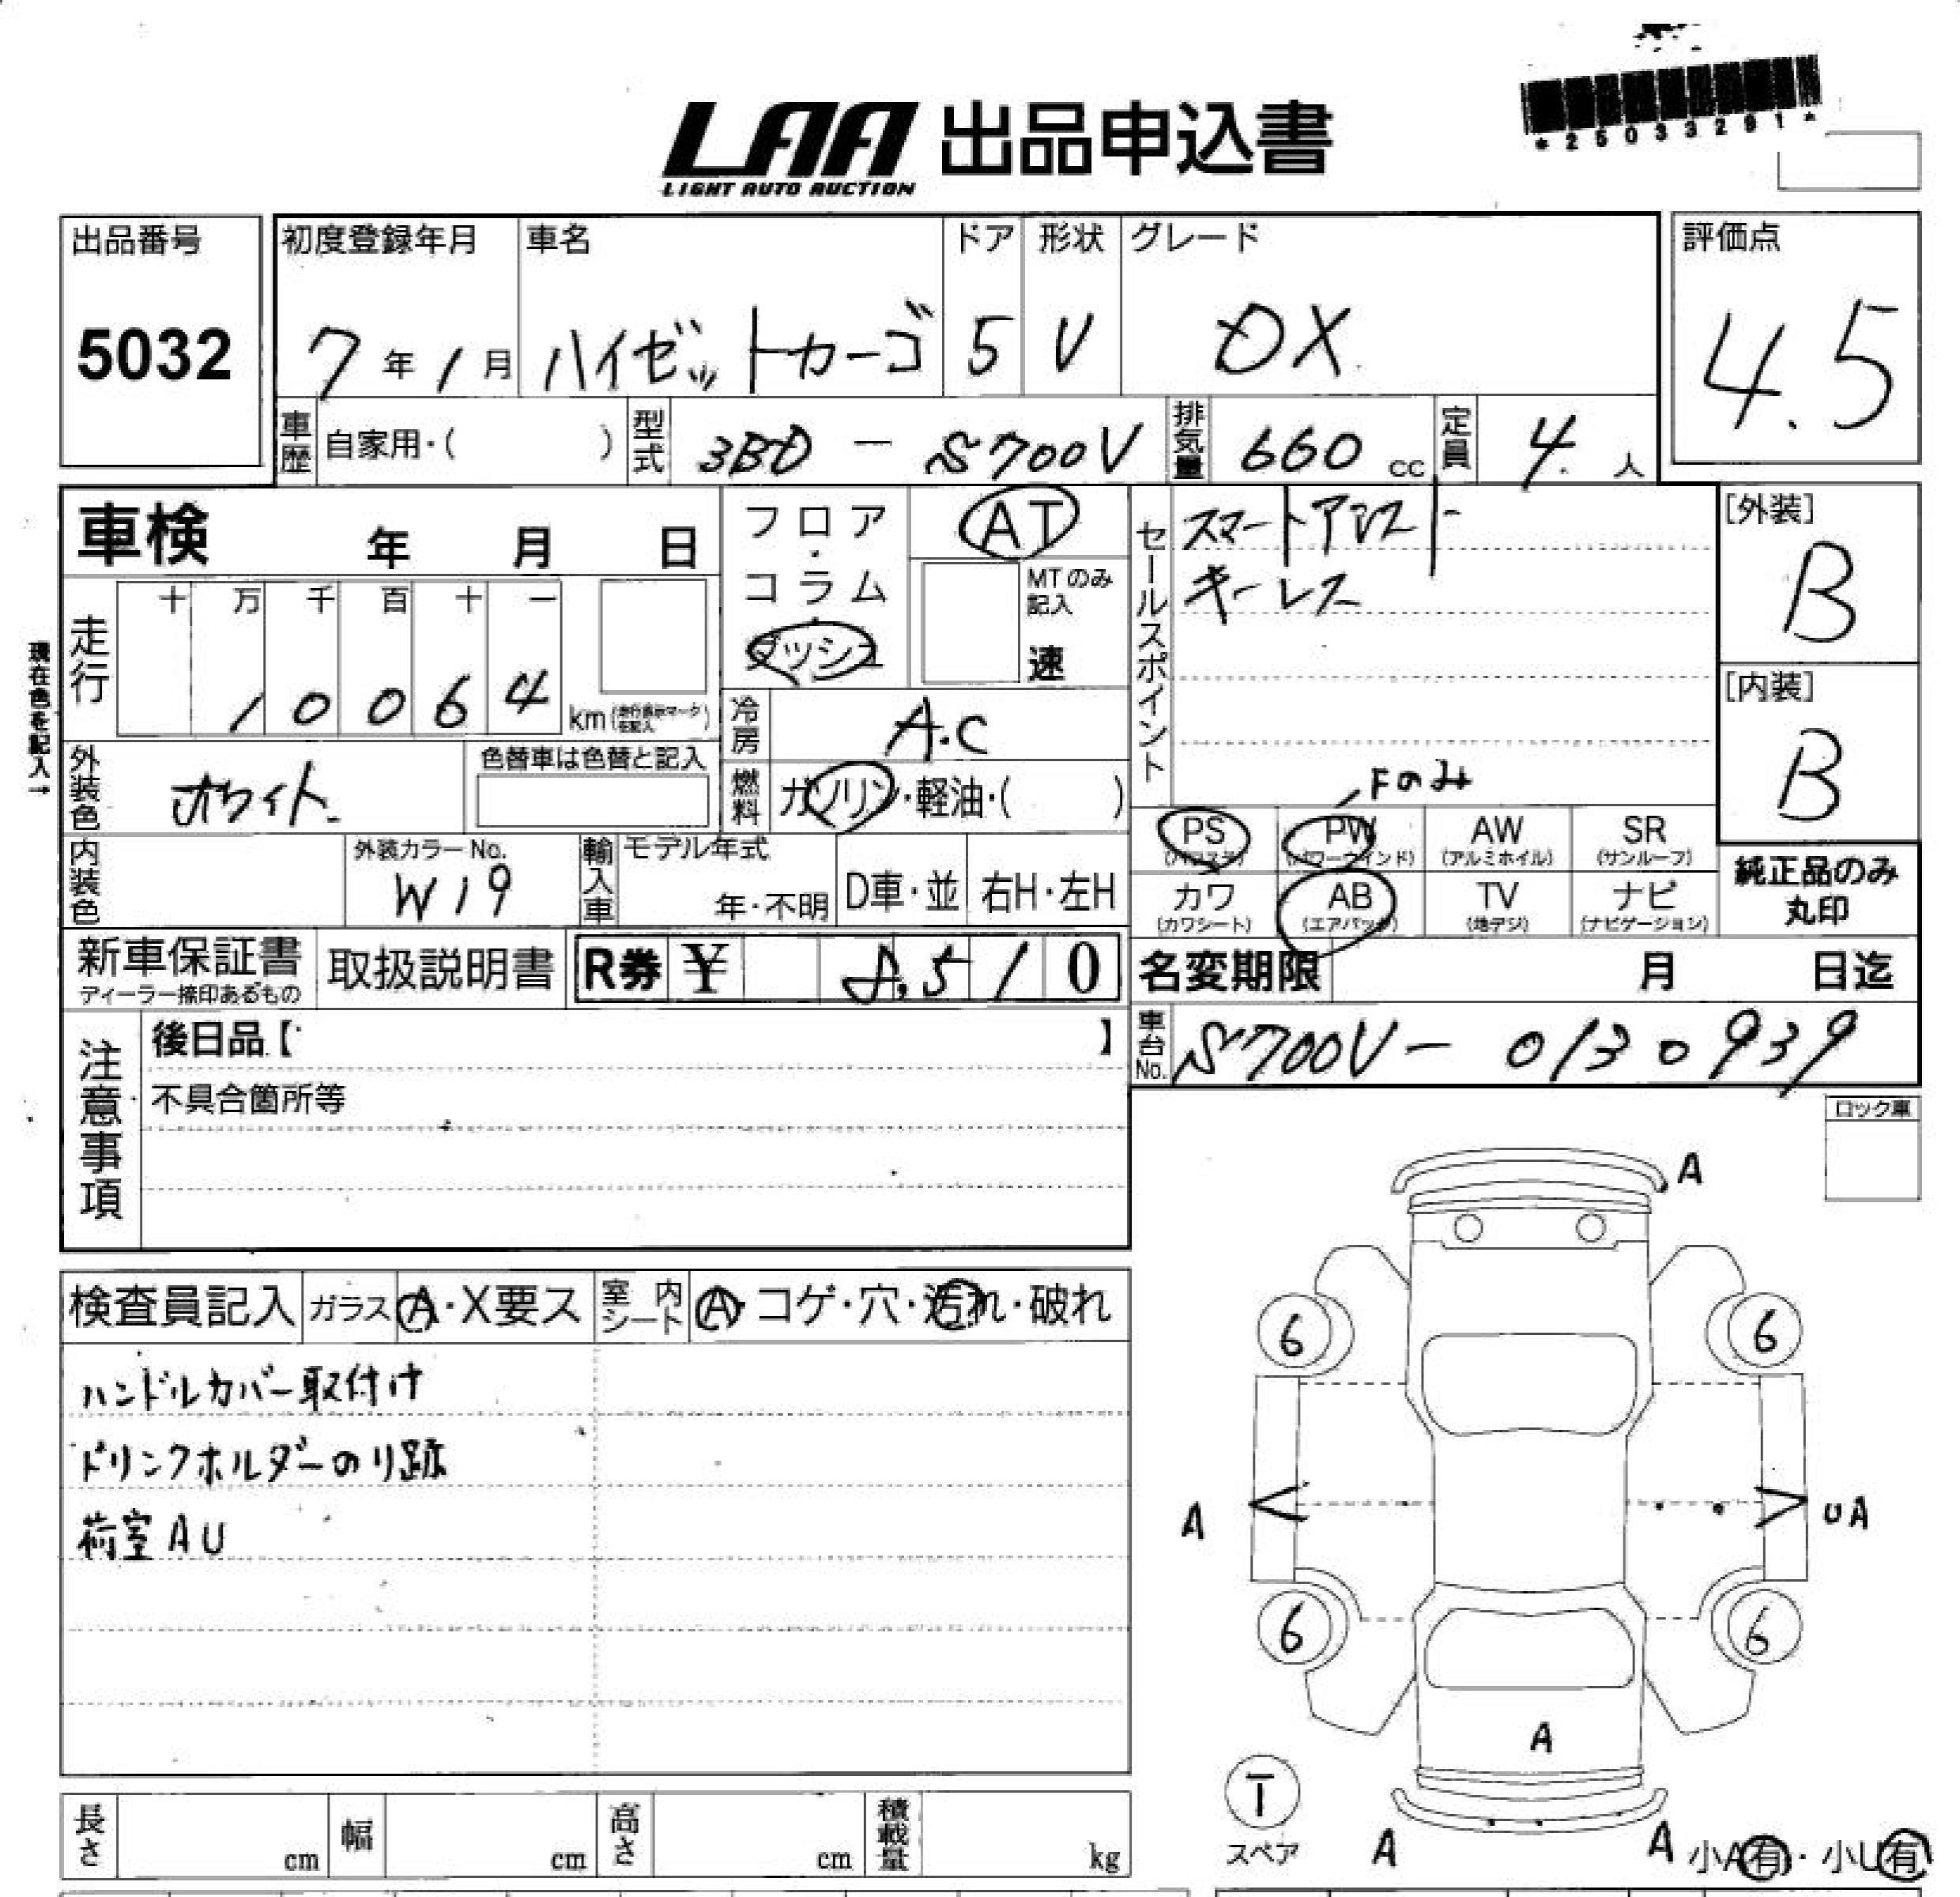 LAA 出品申込書
LIGHT AUTO AUCTION
*25033291*
出品番号
5032
初度登録年月
7年1月
車名
ハイゼットカーゴ
ドア
5
形状
V
グレード
DX
評価点
4.5
車歴 自家用・( )
型式 3BD - S700V
排気量 660 cc
定員 4 人
車検 年 月 日
フロア・コラム・ダッシュ
AT
MTのみ記入
速
セールスポイント
スマートアシスト
キーレス
[外装]
B
[内装]
B
現在色を記入→
走行
十 万 千 百 十 一
1 0 0 6 4 km
冷房 A.C
外装色 ホワイト
色替車は色替と記入
燃料 ガソリン・軽油・( )
Fのみ
PS PW AW SR
(パワステ) (パワーウインド) (アルミホイル) (サンルーフ)
カワ AB TV ナビ
(カワシート) (エアバッグ) (地デジ) (ナビゲーション)
純正品のみ
丸印
内装色
外装カラーNo.
W19
輸入車
モデル年式
年・不明
D車・並
右H・左H
新車保証書
ディーラー捺印あるもの
取扱説明書
R券 ¥ 8,510
名変期限 月 日迄
注意事項
後日品【 】
車台No. S700V- 0130939
不具合箇所等
ロック車
A
検査員記入 ガラス A・X要ス
室内シート A・コゲ・穴・汚れ・破れ
ハンドルカバー取付け
ドリンクホルダーのり跡
荷室AU
6 6
A UA
6 6
A
T
スペア
A A
小A有・小U有
長さ cm
幅 cm
高さ cm
積載量 kg